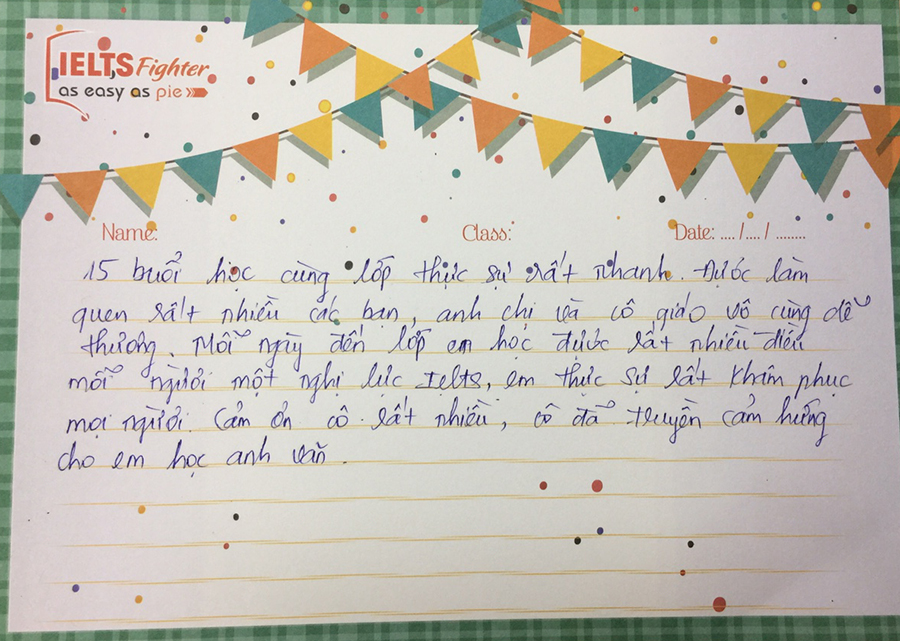 IELTS Fighter
as easy as pie
Name: Class: Date: .... /.... / ........
15 buổi học cùng lớp thực sự rất nhanh. Được làm
quen rất nhiều các bạn, anh chị và cô giáo vô cùng dễ
thương. Mỗi ngày đến lớp em học được rất nhiều điều
mỗi người một nghị lực Ielts, em thực sự rất khâm phục
mọi người. Cảm ơn cô rất nhiều, cô đã truyền cảm hứng
cho em học anh văn.